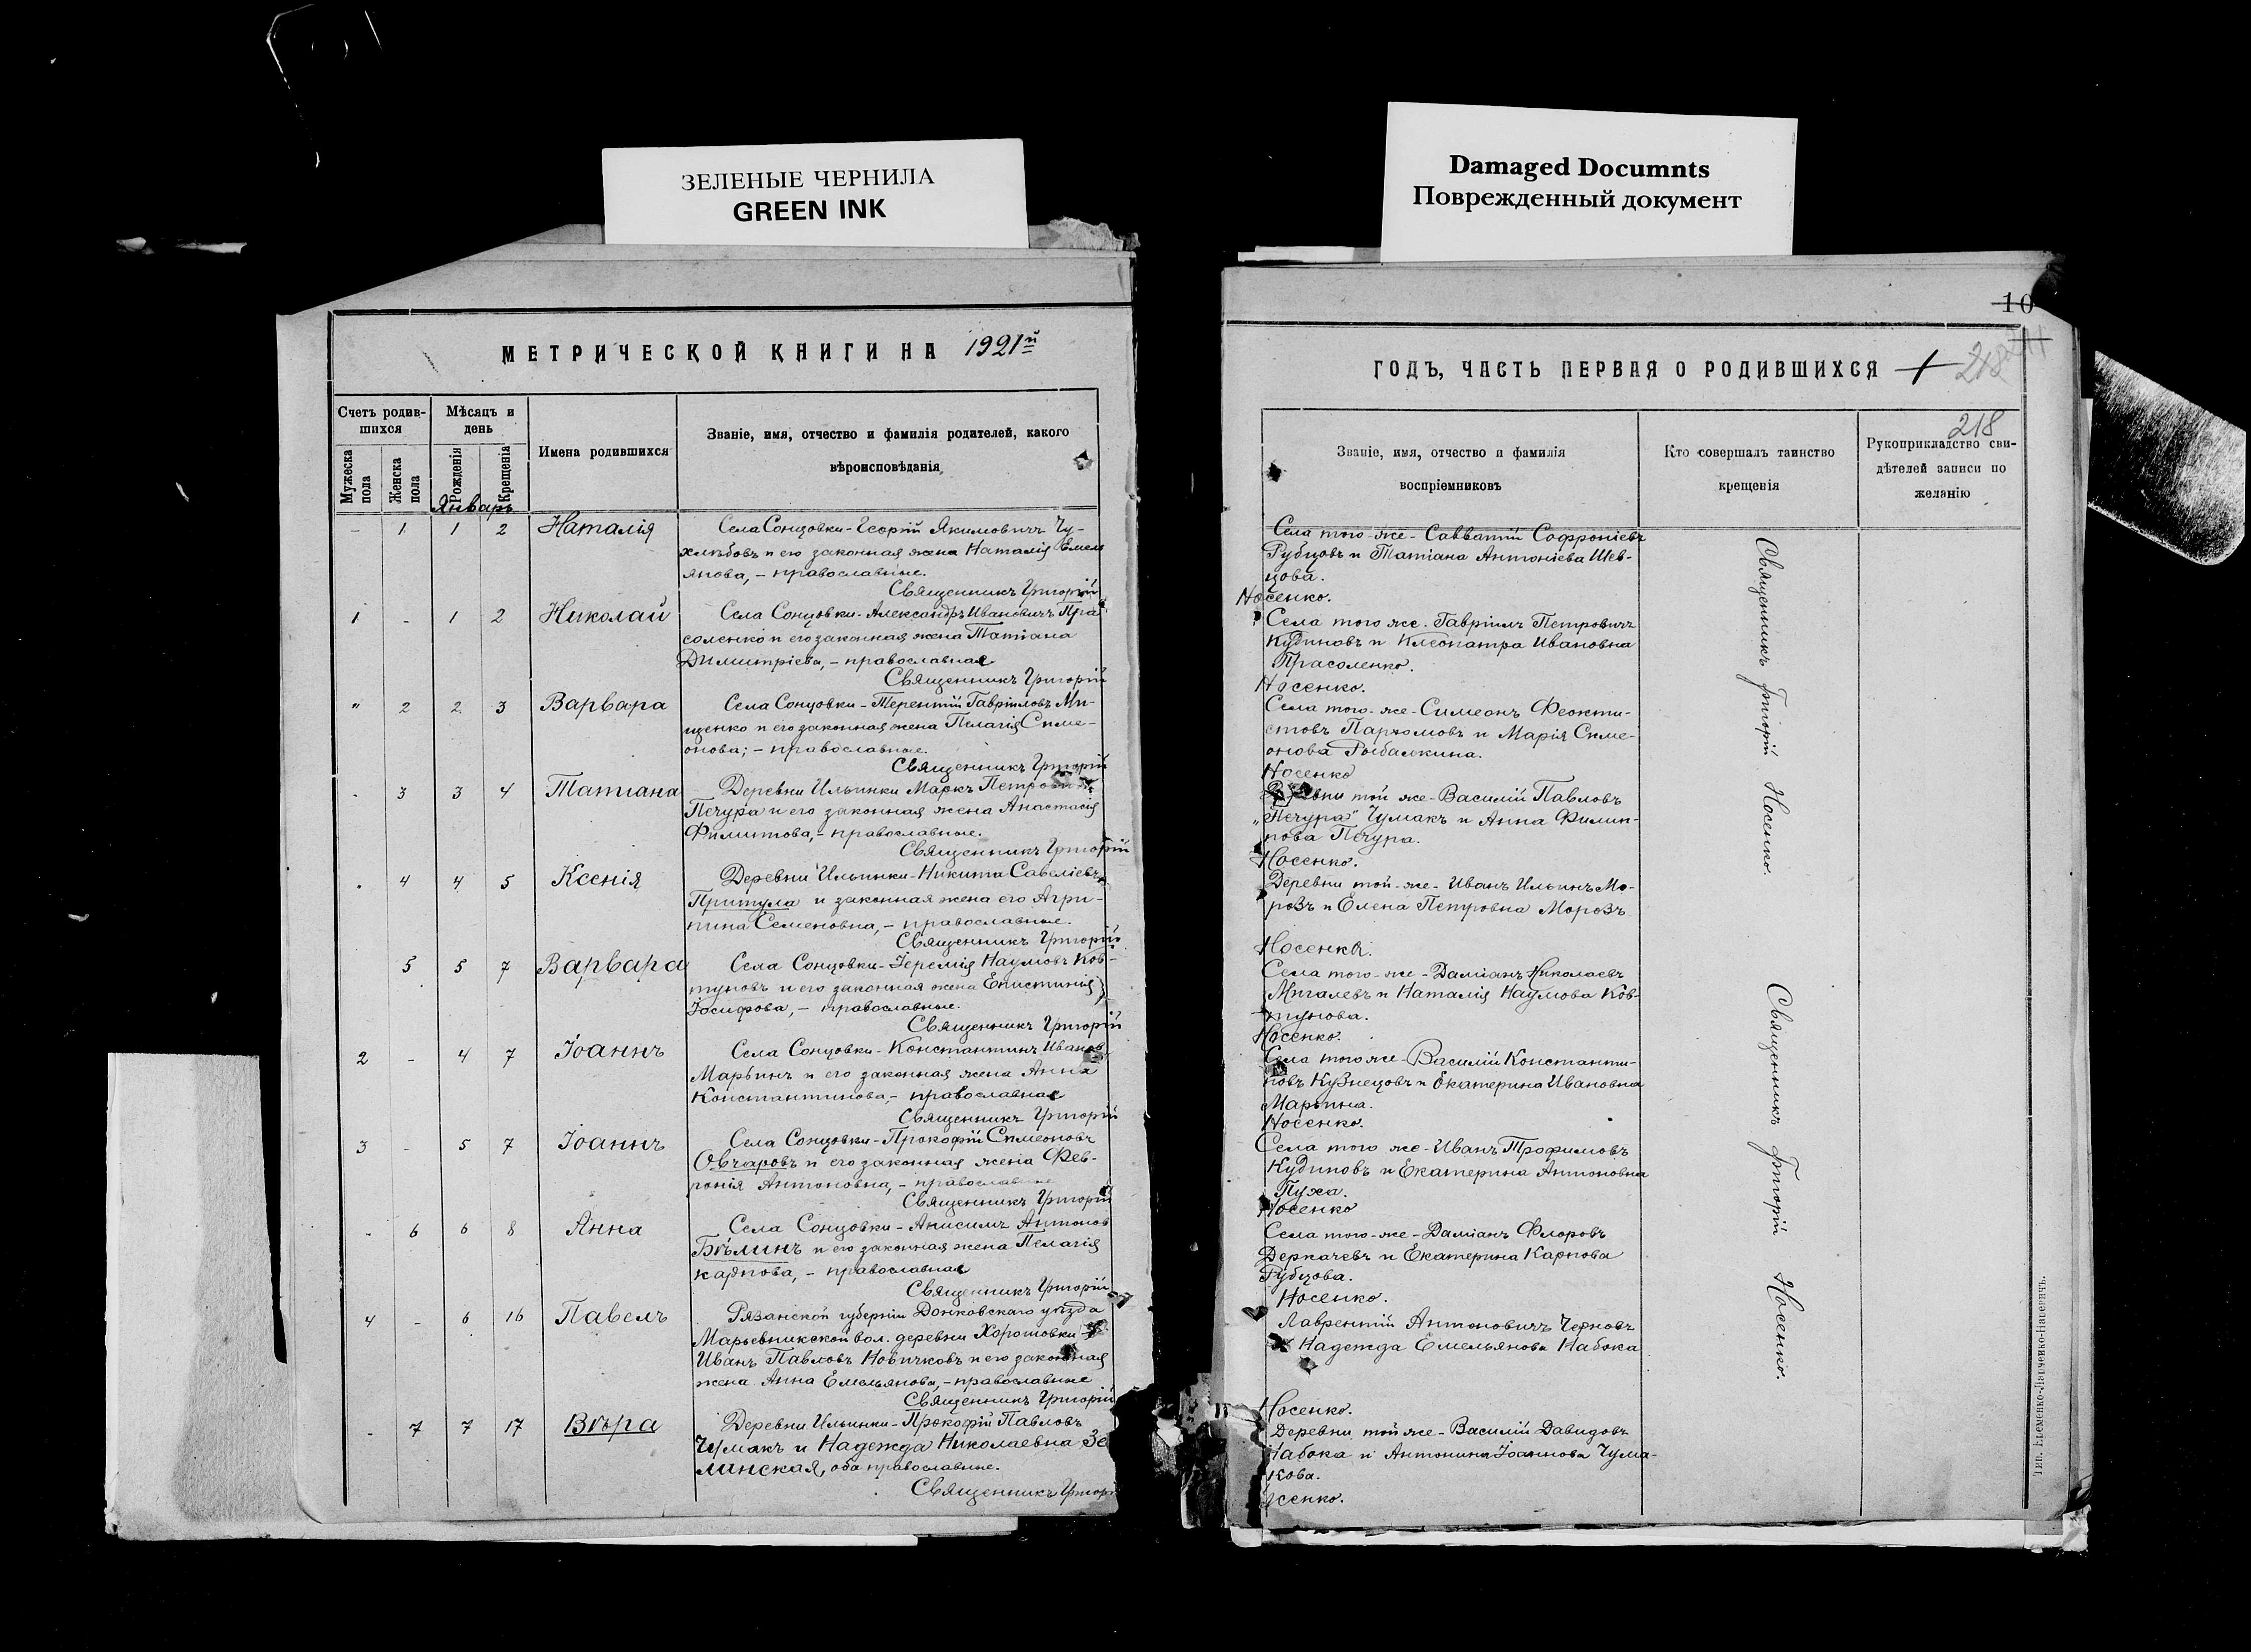 ЗЕЛЕНЫЕ ЧЕРНИЛА
GREEN INK
Damaged Documnts
Поврежденный документ
МЕТРИЧЕСКОЙ КНИГИ НА 1921й
Счетъ родив-
шихся
Мужеска пола
Женска пола
Мѣсяцъ и
день
Рожденія
Крещенія
Январь
Имена родившихся
Званіе, имя, отчество и фамилія родителей, какого
вѣроисповѣданія
- 1 1 2 Наталія Села Сонцовки - Георгій Якимовичъ Чу-
хлѣбовъ и его законная жена Наталія Емель
янова, - православные.
Священникъ Григорій
1 - 1 2 Николай Села Сонцовки - Александръ Ивановичъ Пра
соленко и его законная жена Татіана
Димитріева, - православные
Священникъ Григорій
" 2 2 3 Варвара Села Сонцовки - Терентій Гавріиловъ Ми-
щенко и его законная жена Пелагія Симе-
онова; - православные.
Священникъ Григорій
- 3 3 4 Татіана Деревни Ильинки Маркъ
Печура и его законная жена Анастасія
Филиппова, - православные.
Священникъ Григорій
. 4 4 5 Ксенія Деревни Ильинки - Никита Савеліевъ
Притула и законная жена его Агри-
пина Семеновна, - православные.
Священникъ Григорій
5 5 7 Варвара Села Сонцовки - Іеремія Наумовъ Ков-
туновъ и его законная жена Епистимія
Іосифова, - православные.
Священникъ Григорій
2 - 4 7 Іоаннъ Села Сонцовки - Константинъ Иванов
Марьинъ и его законная жена Анна
Константинова, - православные
Священникъ Григорій
3 - 5 7 Іоаннъ Села Сонцовки - Прокофій Симеоновъ
Овчаровъ и его законная жена Фев-
ронія Антоновна, - православные
Священникъ Григорій
- 6 6 8 Анна Села Сонцовки - Анисимъ Антонов
Бѣлинъ и его законная жена Пелагія
Карпова, - православные
Священникъ Григорій
4 - 6 16 Павелъ Рязанской губерніи Донковскаго уѣзда
вол. деревни Хорошовки
Иванъ Павловъ Новичковъ и его законная
жена Анна Емельянова, - православные
Священникъ Григорій
- 7 7 17 Вѣра Деревни Ильинки - Прокофій Павловъ
Чумакъ и Надежда Николаевна Зе
линская, оба православные.
Священникъ Григор
10
ГОДЪ, ЧАСТЬ ПЕРВАЯ О РОДИВШИХСЯ
218
218
Званіе, имя, отчество и фамилія
воспріемниковъ
Кто совершалъ таинство
крещенія
Рукоприкладство сви-
дѣтелей записи по
желанію
Села того-же - Савватій Софроніевъ
Рубцовъ и Татіана Антоніева Шев-
цова.
Носенко.
Села того же. Гавріилъ Петровичъ
Кудиновъ и Клеопатра Ивановна
Прасоленко.
Носенко.
Села того-же - Симеонъ Феокти-
стовъ Пархомовъ и Марія Симе-
онова Рыбалкина.
Носенко
Деревни той же - Василій Павловъ
„Печура" Чумакъ и Анна Филип-
пова Печура.
Носенко.
Деревни той-же - Иванъ Ильинъ Мо-
розъ и Елена Петровна Морозъ
Носенко.
Села того-же - Даміанъ Николаевъ
Мигалевъ и Наталія Наумова Ков-
тунова.
Носенко.
Села того же - Василій Константи-
новъ Кузнецовъ и Екатерина Ивановна
Марьина.
Носенко.
Села того же - Иванъ Трофимовъ
Кудиновъ и Екатерина Антоновна
Пуха.
Носенко
Села того-же - Даміанъ Флоровъ
Деркачевъ и Екатерина Карпова
Рубцова.
Носенко.
Лаврентій Антоновичъ Черновъ
и Надежда Емельянова Набока
Носенко.
Деревни той же - Василій Давидовъ
Набока и Антонина Іоаннова Чума-
кова.
Носенко.
Священникъ Григорій Носенко.
Священникъ Григорій Носенко.
Тип. Еременко-Лапченко-Васевичъ.